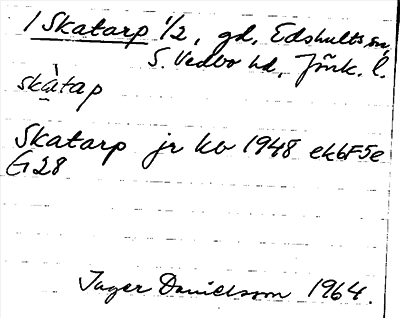 1 Skatarp 1/2, gd, Edshults sn,
S. Vedbo hd, Jönk. l.
skàtap
Skatarp jr kb 1948 ek6F5e
G28
Inger Danielsson 1964.